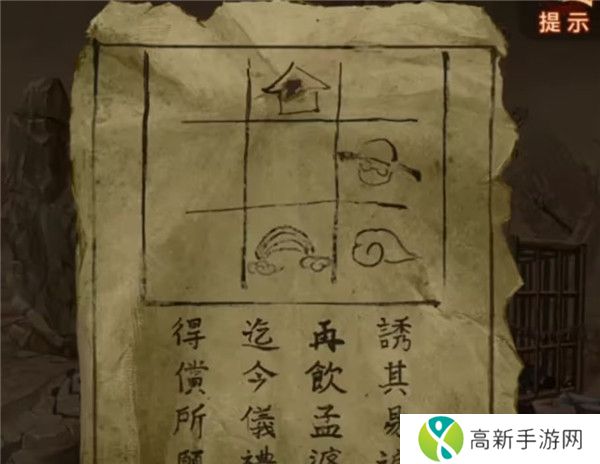 提示
誘其易
再飲孟婆
迄今儀禮
得償所願
高新手游网